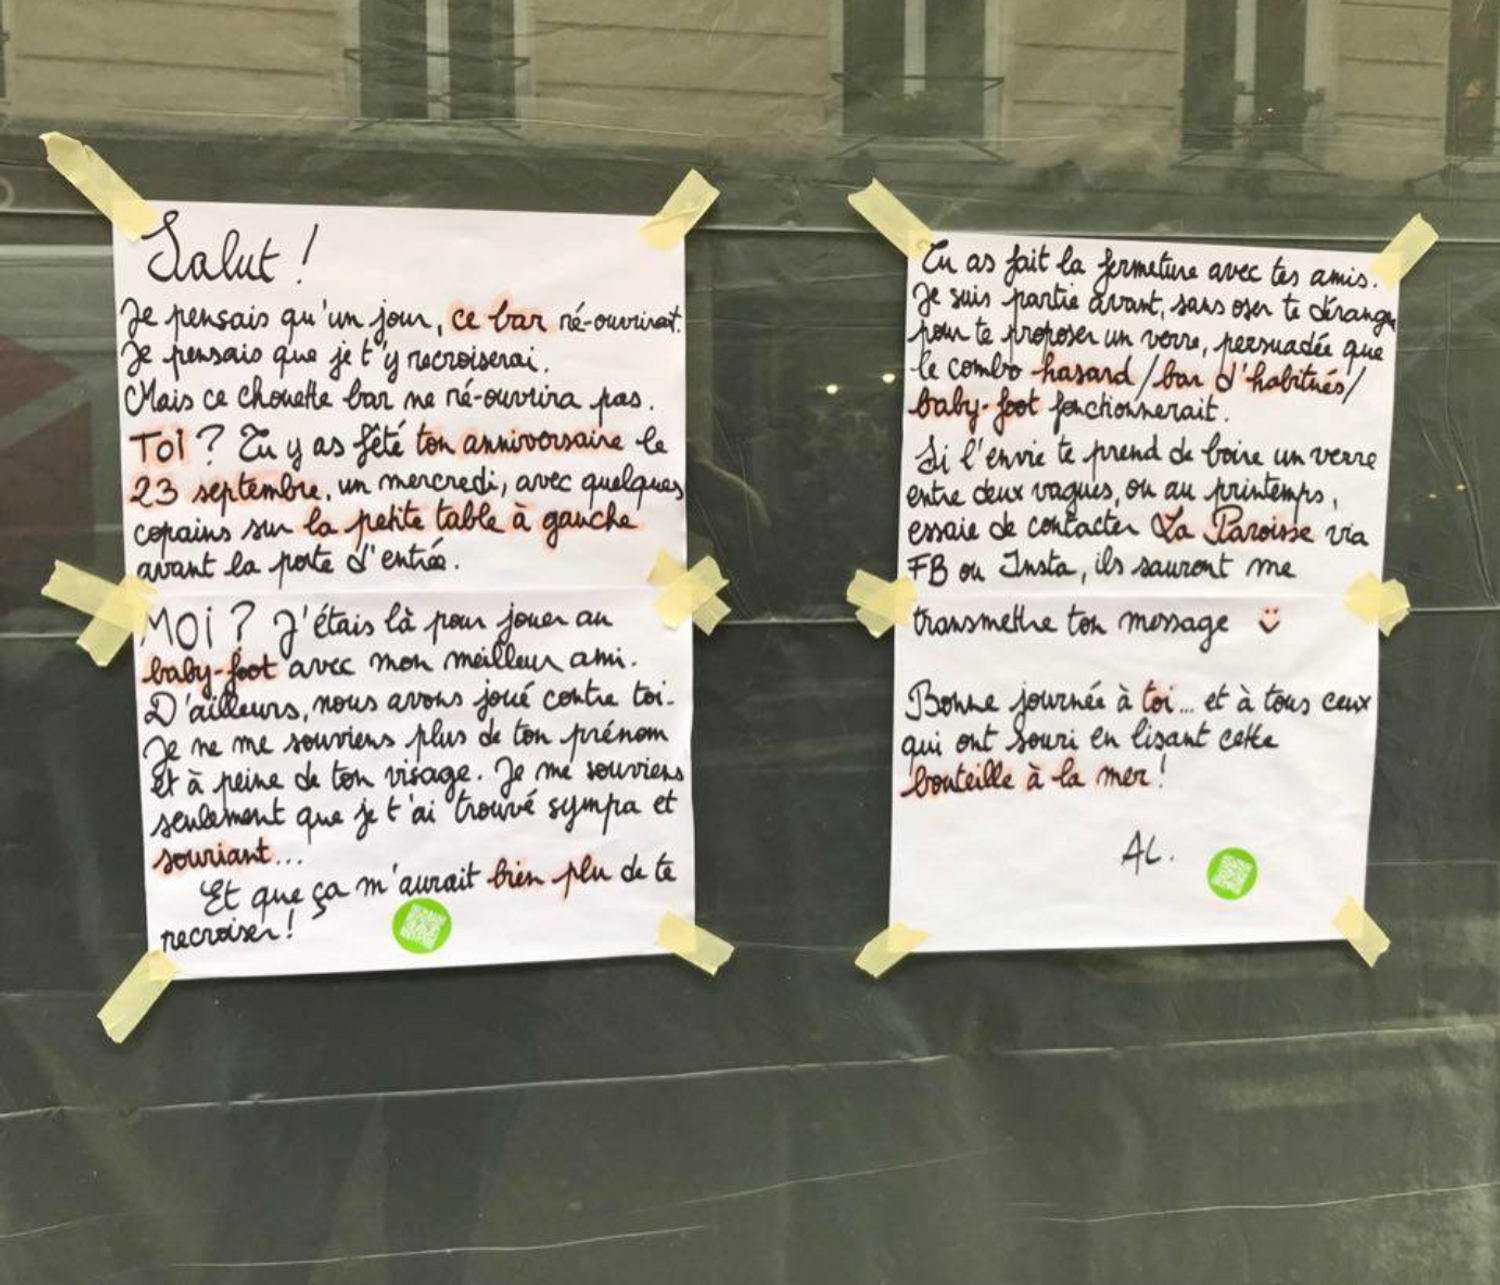 Salut !
Je pensais qu'un jour, ce bar ré-ouvrirait.
Je pensais que je t'y recroiserai.
Mais ce chouette bar ne ré-ouvrira pas.
TOI ? Tu y as fêté ton anniversaire le
23 septembre, un mercredi, avec quelques
copains sur la petite table à gauche
avant la porte d'entrée.
MOI ? J'étais là pour jouer au
baby-foot avec mon meilleur ami.
D'ailleurs, nous avons joué contre toi.
Je ne me souviens plus de ton prénom
et à peine de ton visage. Je me souviens
seulement que je t'ai trouvé sympa et
souriant...
Et que ça m'aurait bien plu de te
recroiser !
Tu as fait la fermeture avec tes amis.
Je suis partie avant, sans oser te déranger
pour te proposer un verre, persuadée que
le combo hasard/bar d'habitués/
baby-foot fonctionnerait.
Si l'envie te prend de boire un verre
entre deux vagues, ou au printemps,
essaie de contacter La Paroisse via
FB ou Insta, ils sauront me
transmettre ton message
Bonne journée à toi... et à tous ceux
qui ont souri en lisant cette
bouteille à la mer !
AL.